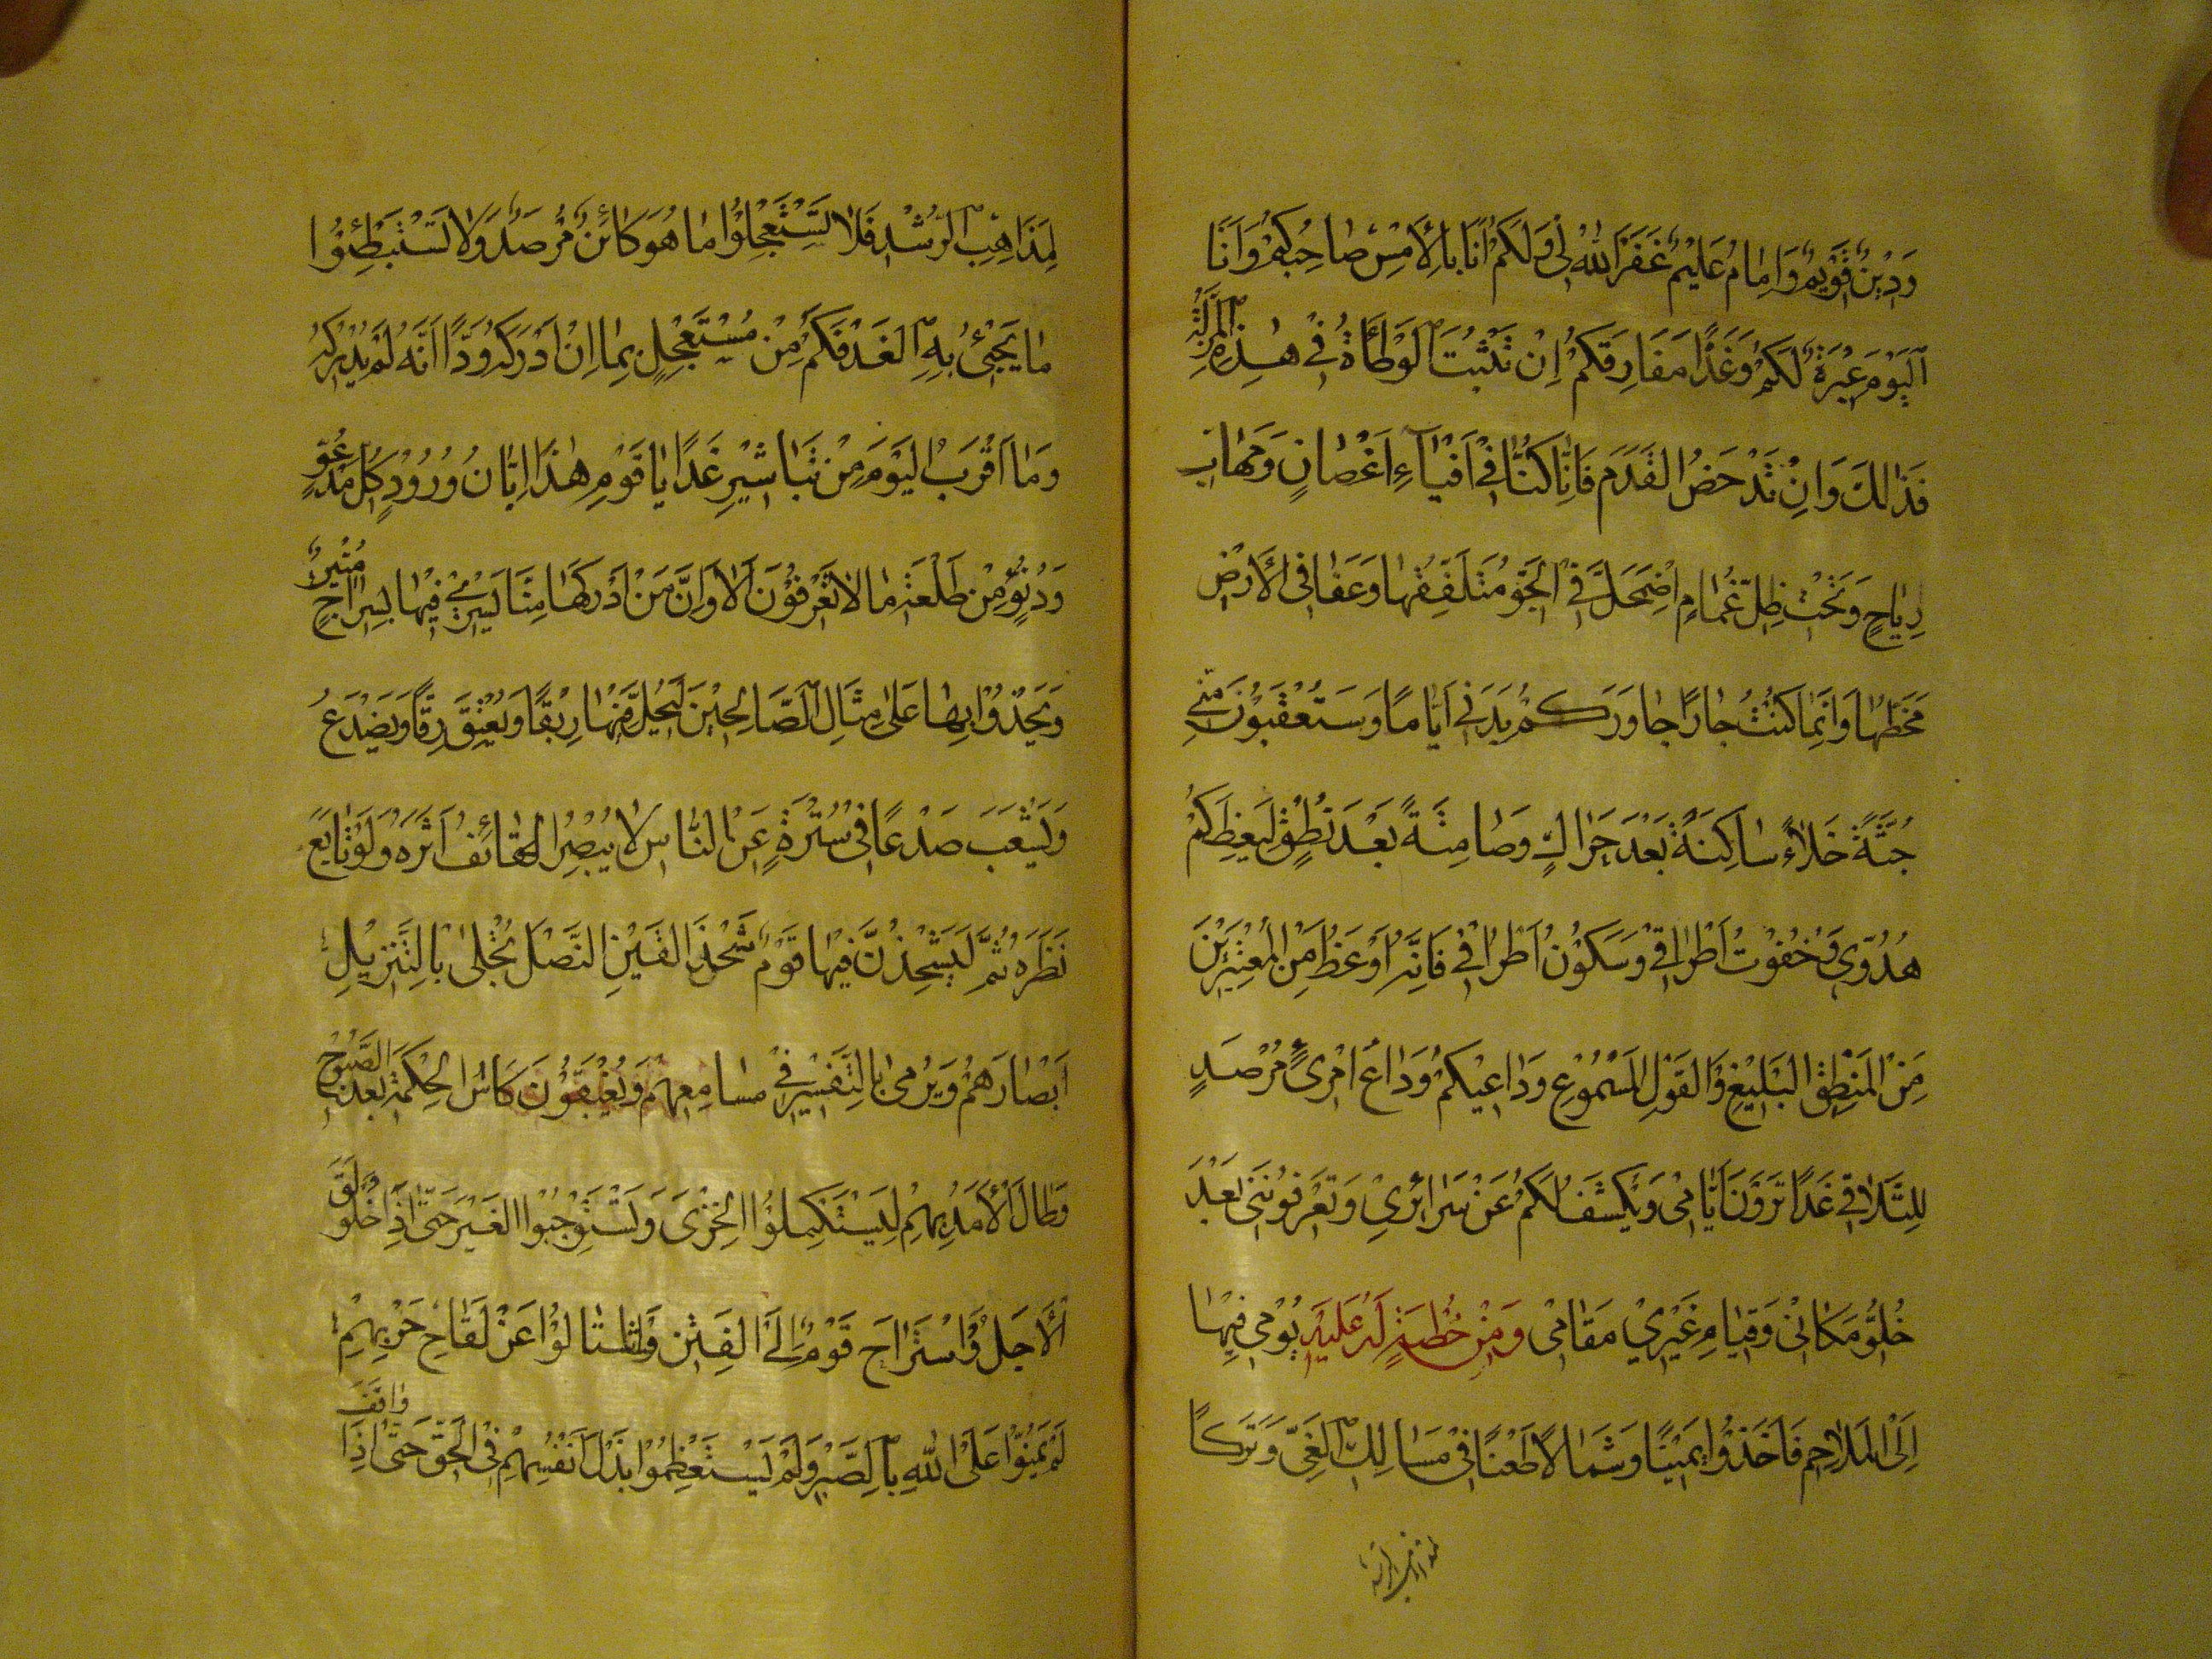 وَدِينٌ قَوِيمٌ وَاِمَامٌ عَلِيمٌ غَفَرَ اللهُ لِي وَلَكُمْ اَنَا بِالْأَمْسِ صَاحِبُكُمْ وَاَنَا
اَلْيَوْمَ عِبْرَةٌ لَكُمْ وَغَدًا مُفَارِقُكُمْ اِنْ تَثْبُتِ الْوَطْأَةُ فِي هٰذِهِ الْمَزَلَّةِ
فَذَالِكَ وَاِنْ تَدْحَضِ الْقَدَمُ فَاِنَّا كُنَّا فِي اَفْيَاءِ اَغْصَانٍ وَمَهَابِّ
رِيَاحٍ وَتَحْتَ ظِلِّ غَمَامٍ اِضْمَحَلَّ فِي الْجَوِّ مُتَلَفِّقُهَا وَعَفَا فِي الْأَرْضِ
مَخَطُّهَا وَاِنَّمَا كُنْتُ جَارًا جَاوَرَكُمْ بَدَنِي اَيَّامًا وَسَتُعْقَبُونَ مِنِّي
جُثَّةً خَلَاءً سَاكِنَةً بَعْدَ حَرَاكٍ وَصَامِتَةً بَعْدَ نُطْقٍ لِيَعِظَكُمْ
هُدُوِّي وَخُفُوتُ اَطْرَاقِي وَسُكُونُ اَطْرَافِي فَاِنَّهُ اَوْعَظُ مِنَ الْمُعْتَبِرِينَ
مِنَ الْمَنْطِقِ الْبَلِيغِ وَالْقَوْلِ الْمَسْمُوعِ وَدَاعِيكُمْ وَدَاعَ امْرِئٍ مُرْصَدٍ
لِلتَّلَاقِي غَدًا تَرَوْنَ اَيَّامِي وَيُكْشَفُ لَكُمْ عَنْ سَرَائِرِي وَتَعْرِفُونَنِي بَعْدَ
خُلُوِّ مَكَانِي وَقِيَامِ غَيْرِي مَقَامِي وَمِنْ خُطْبَةٍ لَهُ عَلَيْهِ يُومِي فِيهَا
اِلَى الْمَلَاحِمِ فَاَخَذُوا يَمِينًا وَشِمَالًا طَعْنًا فِي مَسَالِكِ الْغَيِّ وَتَرْكًا
لِمَذَاهِبِ الرُّشْدِ فَلَا تَسْتَعْجِلُوا مَا هُوَ كَائِنٌ مُرْصَدٌ وَلَا تَسْتَبْطِئُوا
مَا يَجِيءُ بِهِ الْغَدُ فَكَمْ مِنْ مُسْتَعْجِلٍ بِمَا اِنْ اَدْرَكَهُ وَدَّ اَنَّهُ لَمْ يُدْرِكْهُ
وَمَا اَقْرَبَ الْيَوْمَ مِنْ تَبَاشِيرِ غَدٍ اَيَا قَوْمِ هٰذَا اِبَّانُ وُرُودِ كُلِّ مَوْعُودٍ
وَدُنُوٍّ مِنْ طَلْعَةِ مَا لَا تَعْرِفُونَ اَلَا وَاِنَّ مَنْ اَدْرَكَهَا مِنَّا يَسْرِي فِيهَا بِسِرَاجٍ مُنِيرٍ
وَيَحْذُوا فِيهَا عَلٰى مِثَالِ الصَّالِحِينَ لِيَحُلَّ فِيهَا رِبْقًا وَيُعْتِقَ رِقًّا وَيَصْدَعَ
وَيَشْعَبَ صَدْعًا فِي سُتْرَةٍ عَنِ النَّاسِ لَا يُبْصِرُ الْقَائِفُ اَثَرَهُ وَلَوْ تَابَعَ
نَظَرَهُ ثُمَّ لَيُشْحَذَنَّ فِيهَا قَوْمٌ شَحْذَ الْقَيْنِ النَّصْلَ تُجْلٰى بِالتَّنْزِيلِ
اَبْصَارُهُمْ وَيُرْمٰى بِالتَّفْسِيرِ فِي مَسَامِعِهِمْ وَيُغْبَقُونَ كَاْسَ الْحِكْمَةِ بَعْدَ الصَّبُوحِ
وَطَالَ الْأَمَدُ بِهِمْ لِيَسْتَكْمِلُوا الْخِزْيَ وَيَسْتَوْجِبُوا الْغِيَرَ حَتّٰى اِذَا اخْلَوْلَقَ
الْأَجَلُ وَاسْتَرَاحَ قَوْمٌ اِلَى الْفِتَنِ وَاشْتَالُوا عَنْ لَقَاحِ حَرْبِهِمْ
لَمْ يَمُنُّوا عَلَى اللهِ بِالصَّبْرِ وَلَمْ يَسْتَعْظِمُوا بَذْلَ اَنْفُسِهِمْ فِي الْحَقِّ حَتّٰى اِذَا وَافَقَ